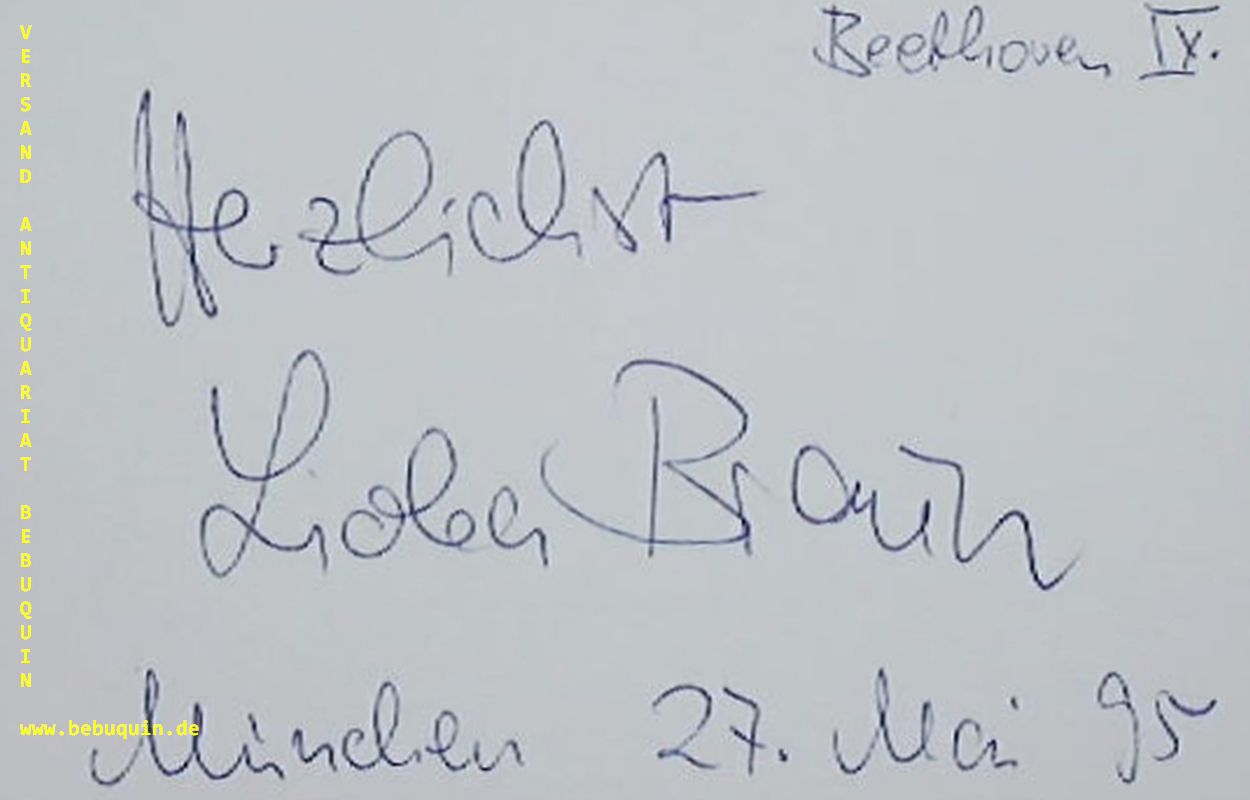 Beethoven IX.
Herzlichst
Lioba Braun
München 27. Mai 95
VERSAND ANTIQUARIAT BEBUQUIN
www.bebuquin.de